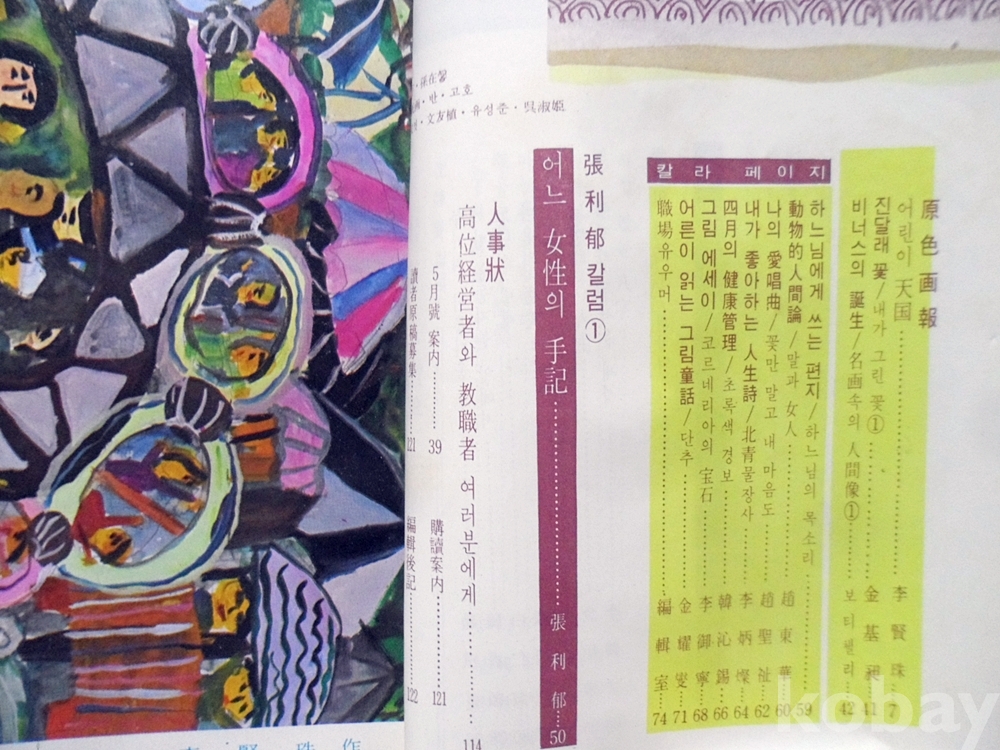 반·고호
文友植·유성준·呉淑姫
原色画報
어린이 天国 ······ 李賢珠 7
진달래 꽃/내가 그린 꽃① ······ 金基昶 41
비너스의 誕生/名画속의 人間像① 보티첼리 42
칼라 페이지
하느님에게 쓰는 편지/하느님의 목소리 ······ 59
動物的人間論/말과 女人 ······ 趙東華 60
나의 愛唱曲/꽃만 말고 내 마음도 ······ 趙聖祉 62
내가 좋아하는 人生詩/北青물장사 ······ 李炳燦 64
四月의 健康管理/초록색 경보 ······ 韓沁錫 66
그림 에세이/코르네리아의 宝石 ······ 李御寧 68
어른이 읽는 그림童話/단추 ······ 金耀燮 71
職場유우머 ······ 編輯室 74
張利郁 칼럼①
어느 女性의 手記 ······ 張利郁 50
人事狀
高位経営者와 教職者 여러분에게 ······ 114
5月號 案内 ······ 39 購讀案内 ······ 121
讀者原稿募集 ······ 121 編輯後記 ······ 122
賢珠作
kobay